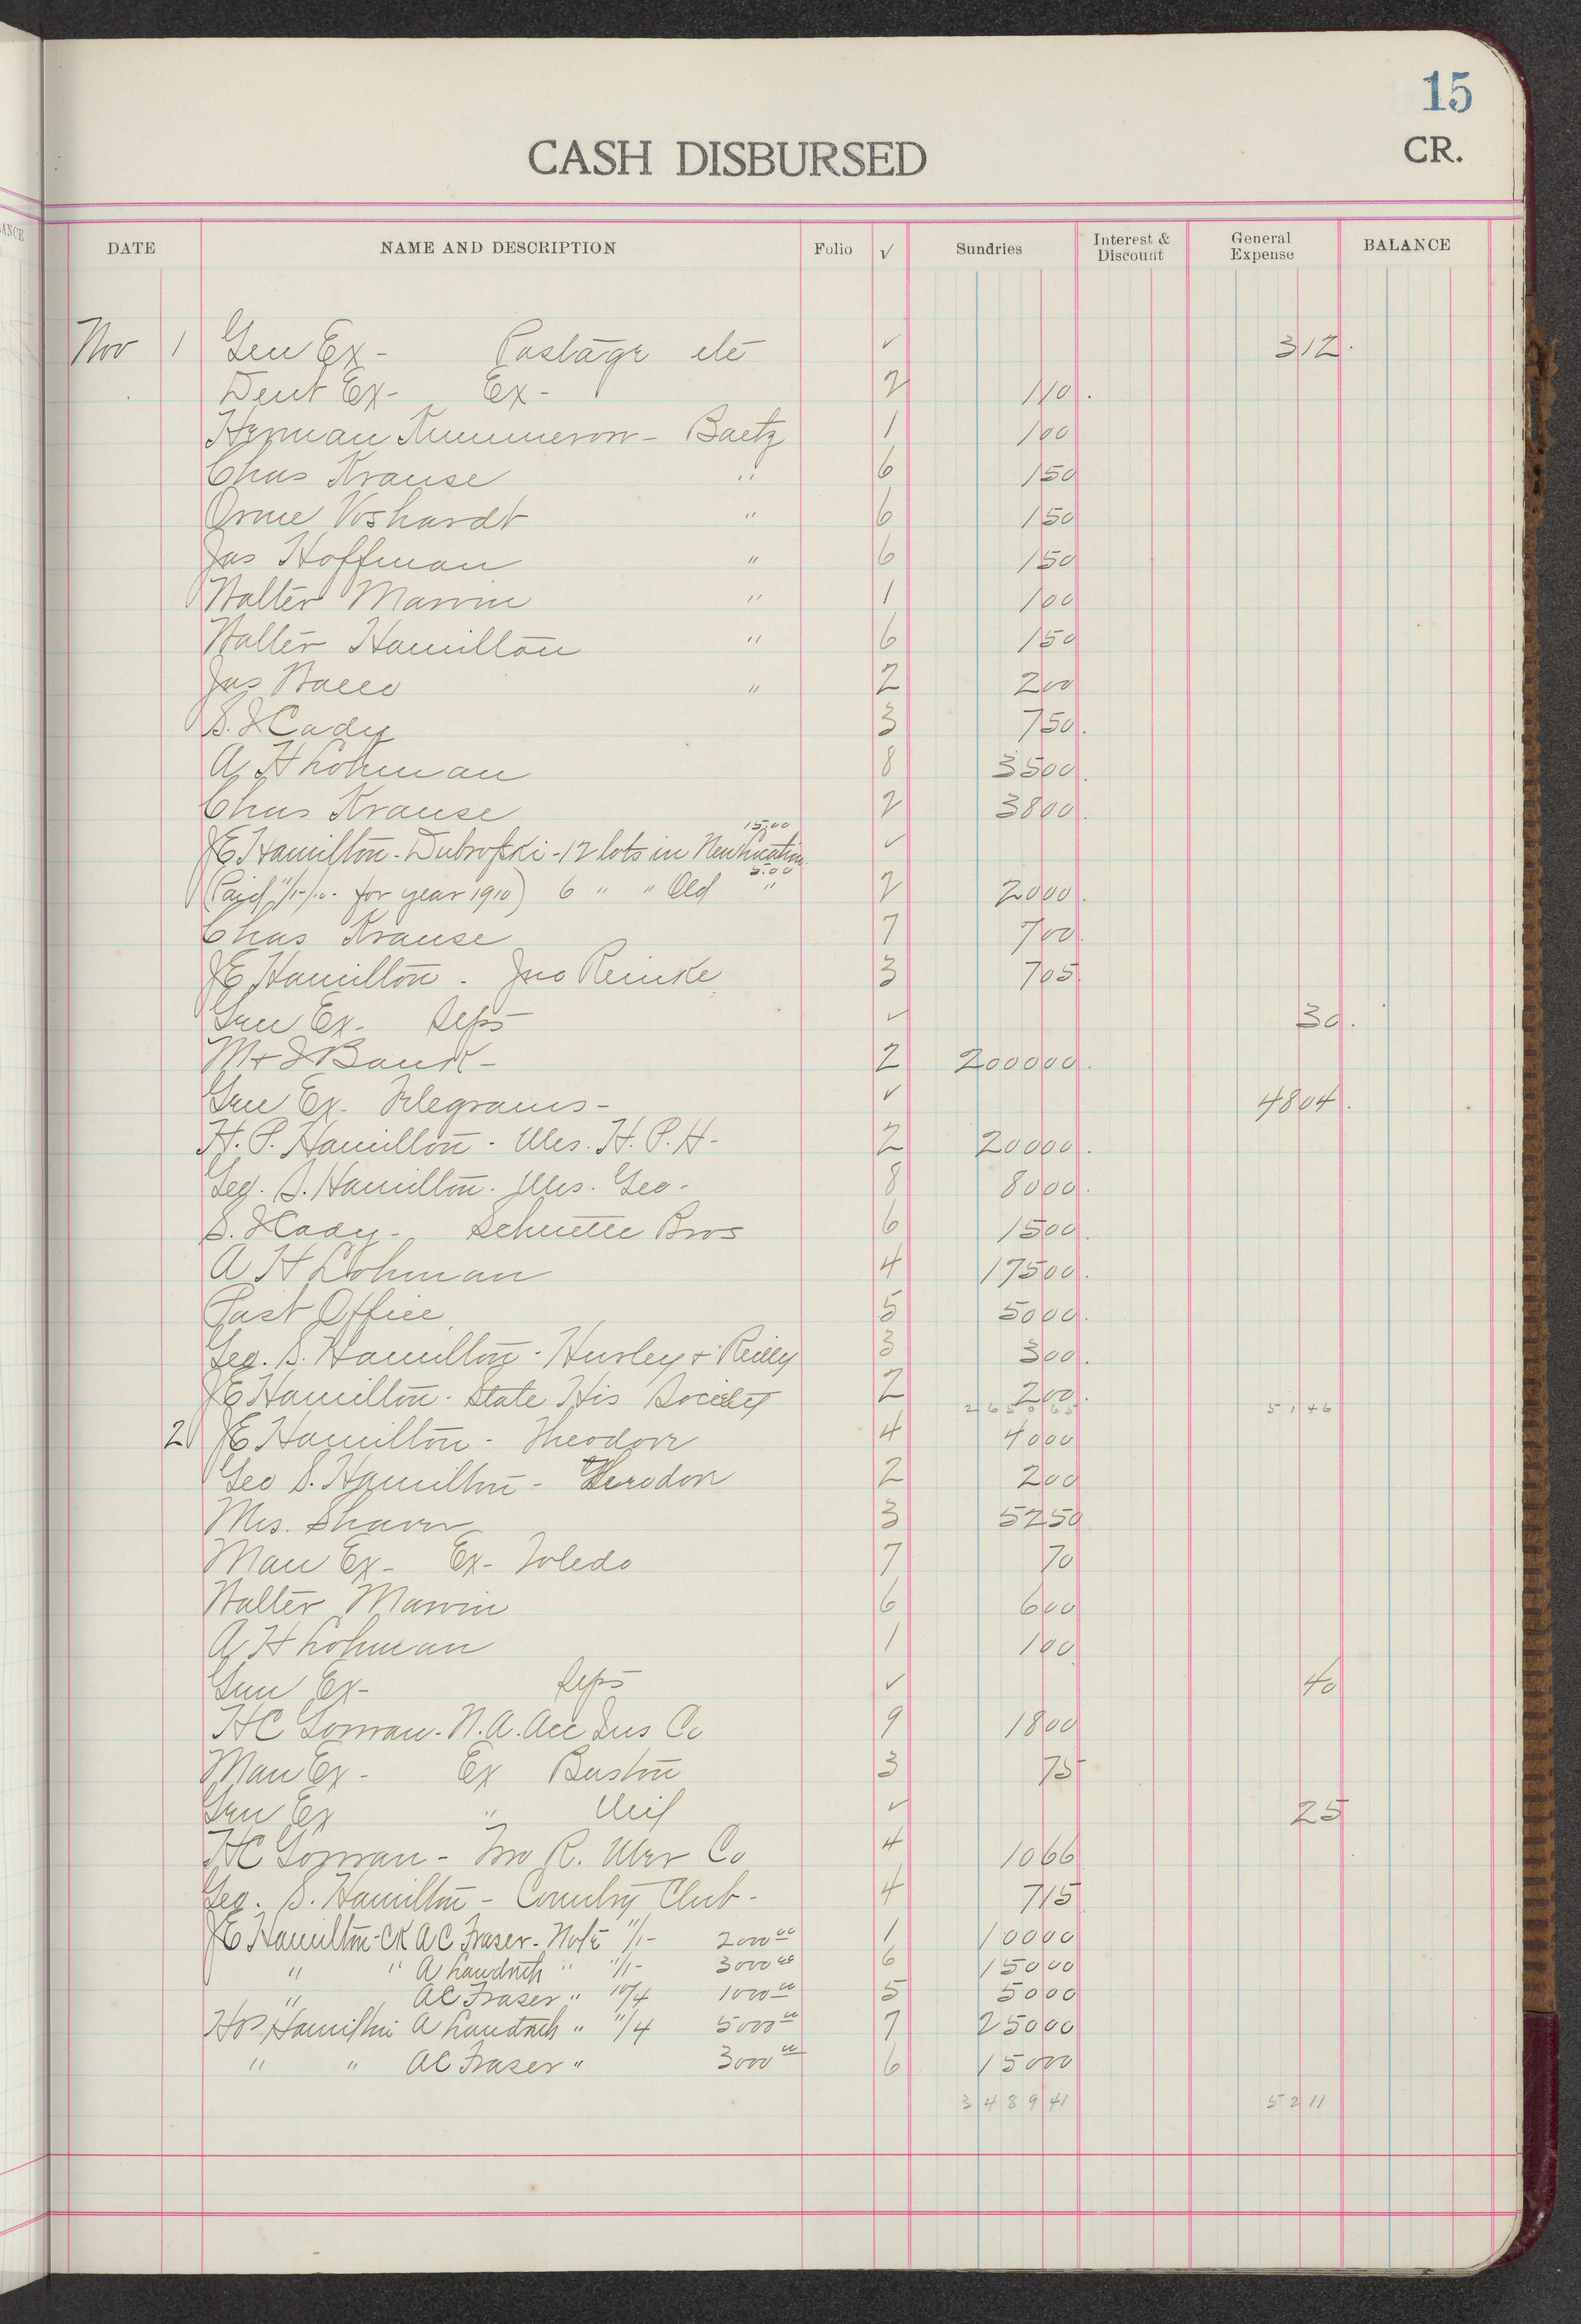 15
CASH DISBURSED CR.
DATE NAME AND DESCRIPTION Folio ✓ Sundries Interest & Discount General Expense BALANCE
Nov 1 Gen Ex - Postage etc ✓ 312.
Dent Ex - Ex - 2 110.
Herman - Baetz 1 100
Chas Krause " 6 150
Orme Voshardt " 6 150
Jas Hoffman " 6 150
Walter Marvin " 1 100
Walter Hamilton " 6 150
Jas " 2 200
S. J Cady 3 750.
A H Lohman 8 3500.
Chas Krause 2 3800.
15.00
JE Hamilton - - 12 lots in New location ✓
5.00
(Paid 11/1-10 - for year 1910) 6 " " Old " 2 2000.
Chas Krause 7 700.
JE Hamilton - Jno Reinke 3 705.
Gen Ex - ✓ 30.
M & J Bank - 2 200000.
Gen Ex - Telegrams - ✓ 4804.
H. P. Hamilton - Mrs. H. P. H - 2 20000.
Geo. S. Hamilton - Mrs. Geo - 8 8000.
S. J Cady - Schuette Bros 6 1500.
A H Lohman 4 17500.
Post Office 5 5000.
Geo. S. Hamilton - Hurley & Reilly 3 300.
JE Hamilton - State His Society 2 200.
265065 5146
2 JE Hamilton - Theodore 4 4000
Geo S. Hamilton - 2 200
Mrs. Shaver 3 5250
Man Ex - Ex - Toledo 7 70
Walter Marvin 6 600
A H Lohman 1 100
Gen Ex - ✓ 40
HC - N. A. Acc Ins Co 9 1800
Man Ex - Ex 3 75
Gen Ex " ✓ 25
HC - Co 4 1066
Geo. S. Hamilton - Country Club - 4 715
JE Hamilton - CK AC Fraser - Note 11/1 - 2000 00 1 10000
" " A " 11/1 - 3000 00 6 15000
" AC Fraser " 10/4 1000 00 5 5000
HP Hamilton A " 11/4 5000 00 7 25000
" " AC Fraser " 3000 00 6 15000
348941 5211